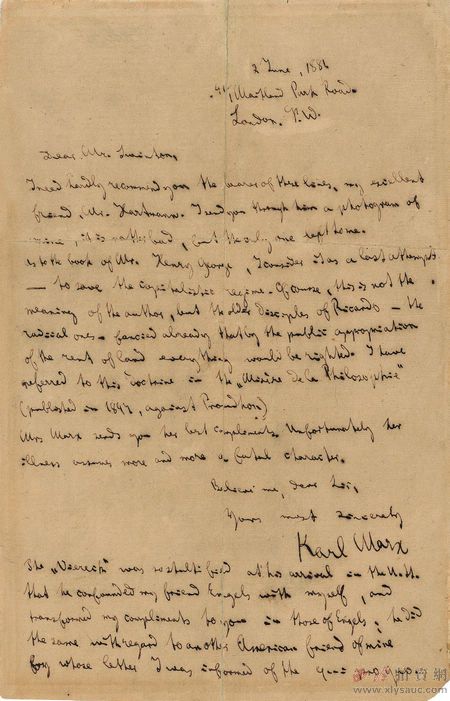 2 June, 1881
41, Maitland Park Road.
London. N.W.
Dear Mr. Swinton,
I need hardly recommend you the bearer of these lines, my excellent
friend, Mr. Hartmann. I send you through him a photogram of
mine; it is rather bad, but the only one left to me.
As to the book of Mr. Henry George, I consider it as a last attempt
— to save the capitalistic regime. Of course, this is not the
meaning of the author, but the older disciples of Ricardo — the
radical ones — fancied already that by the public appropriation
of the rent of land everything would be righted. I have
referred to this doctrine in the „Misère de la Philosophie"
(published in 1847, against Proudhon)
Mrs Marx sends you her best compliments. Unfortunately her
illness assumes more and more a fatal character.
Believe me, dear Sir,
Yours most sincerely
Karl Marx
The „Viereck" was so stultified at his arrival in the U. St.
that he confounded my friend Engels with myself, and
transformed my compliments to you in those of Engels; he did
the same with regard to another American friend of mine
by whose letter I was informed of the
www.xlysauc.com